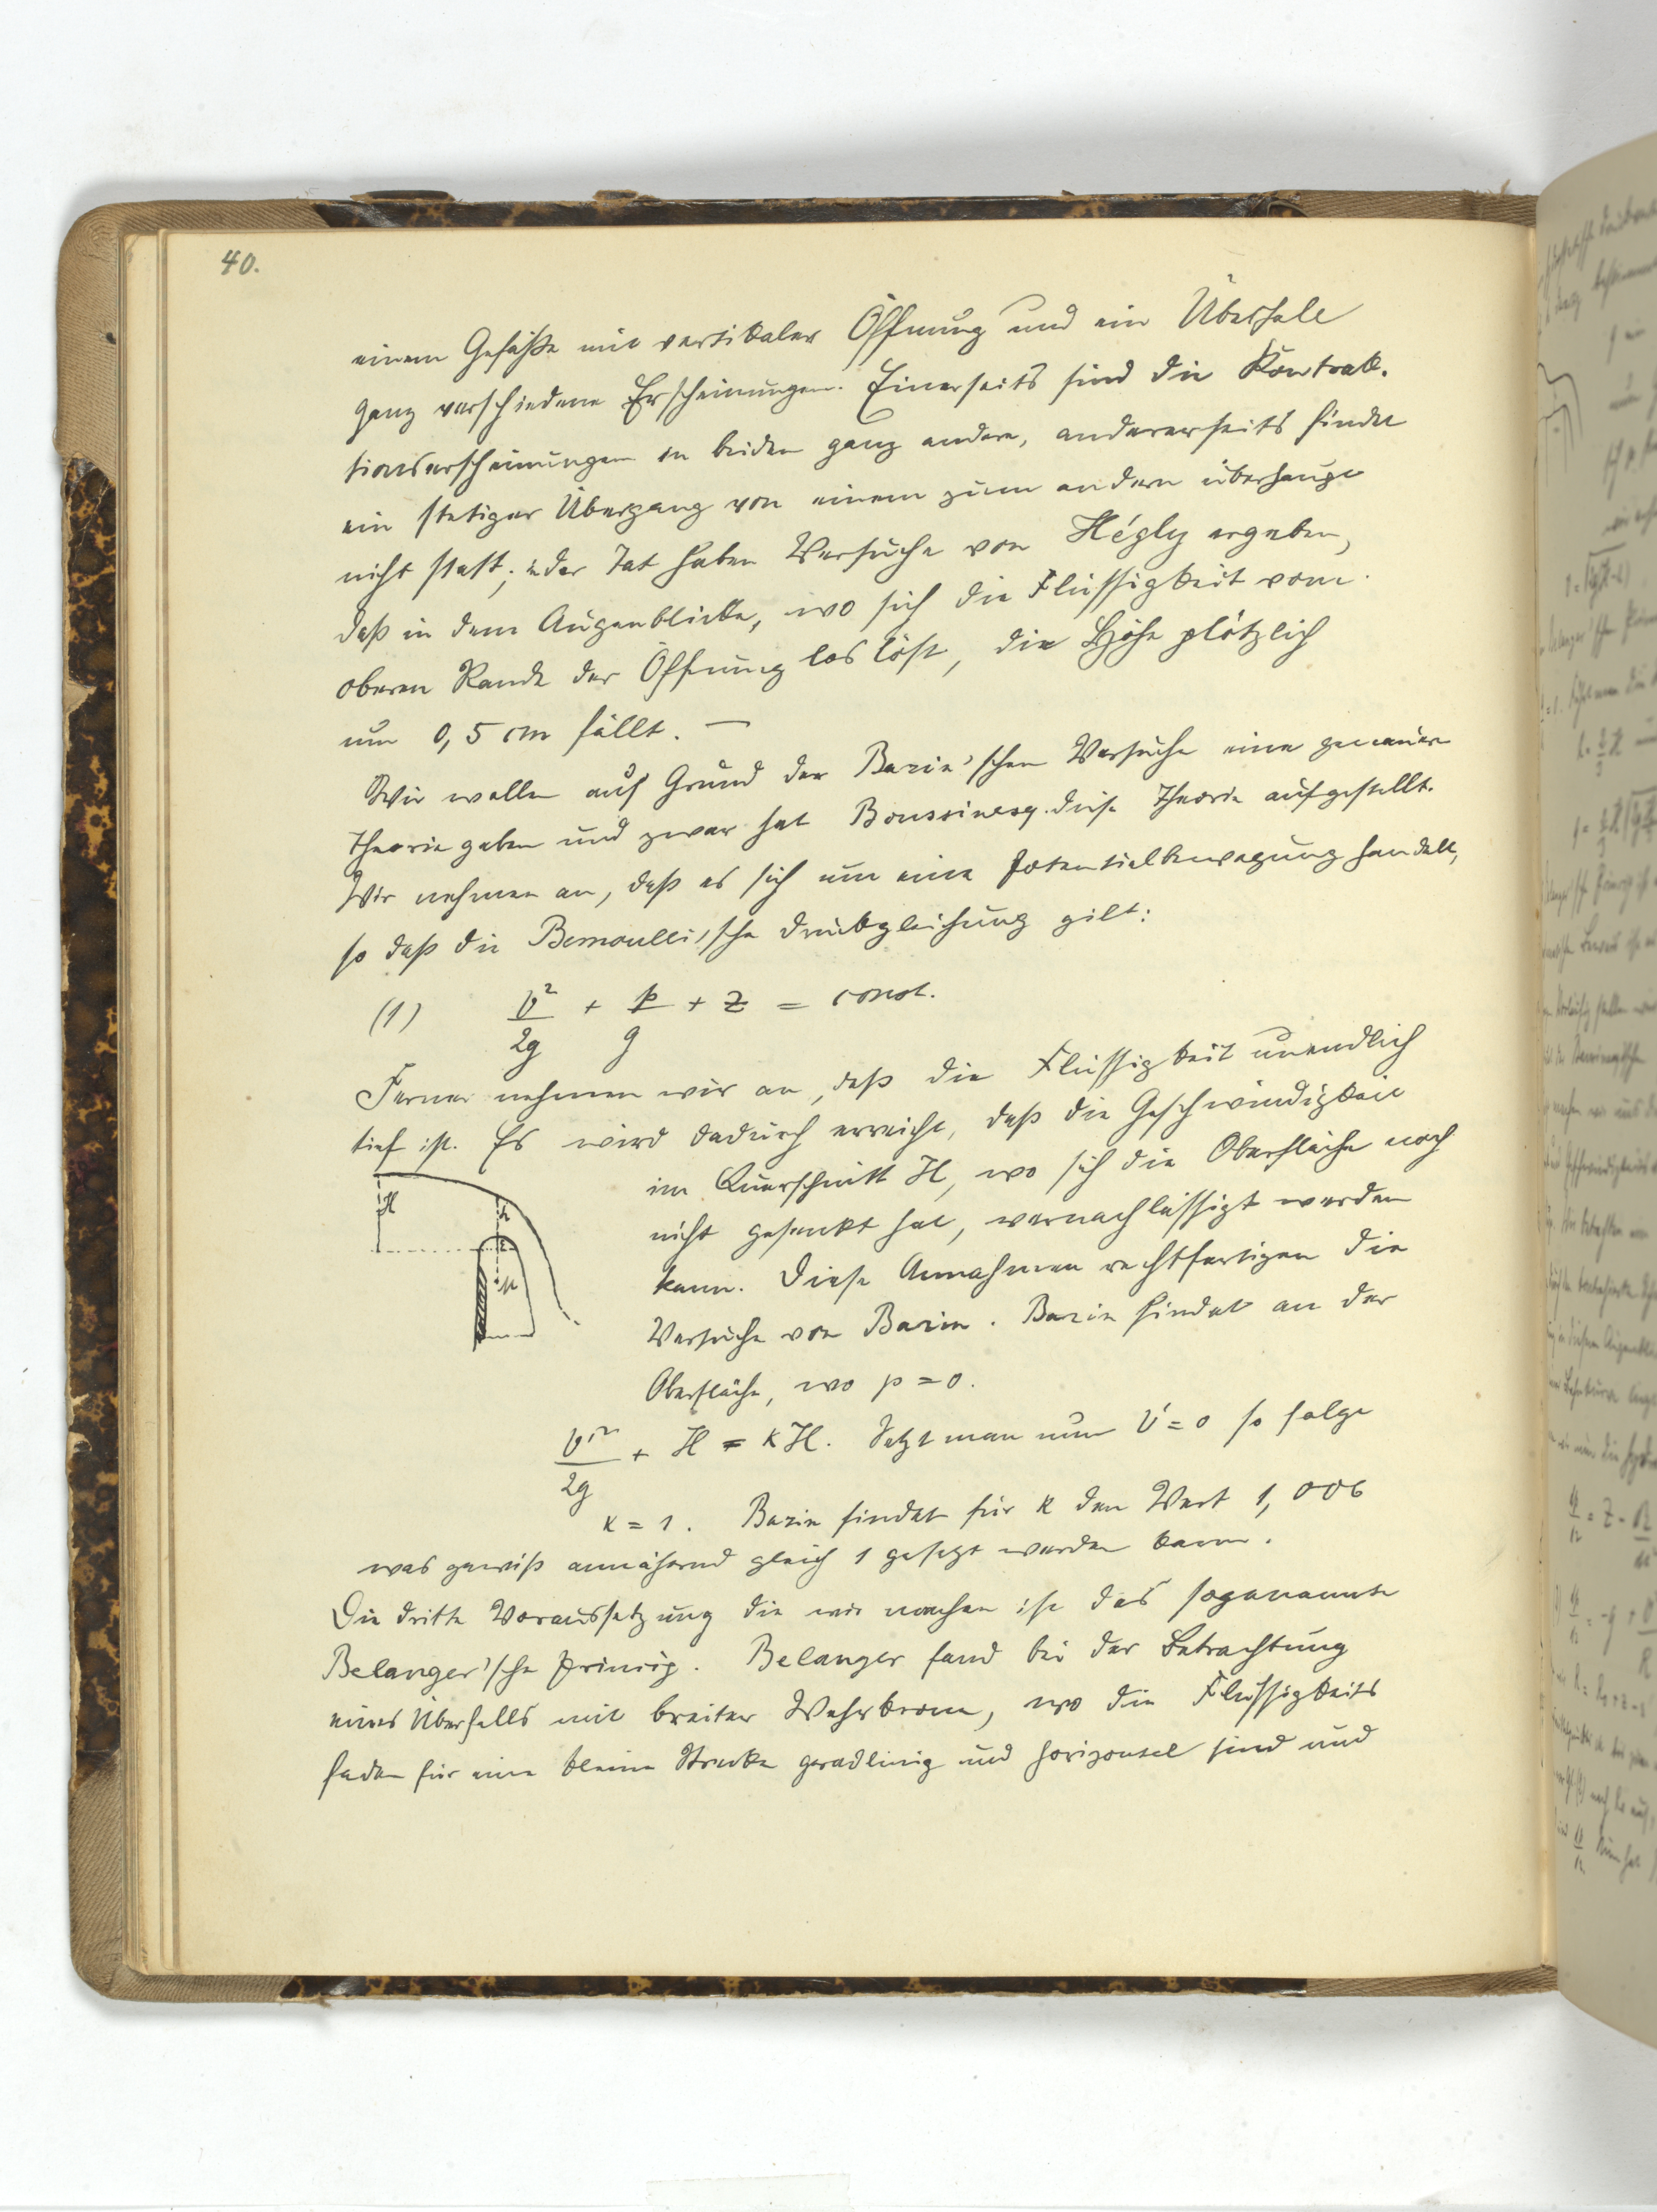 40.
einem Gefäße mit vertikaler Öffnung und ein Überfall
ganz verschiedene Erscheinungen. Einerseits sind die Kontrak-
tionserscheinungen in beiden ganz andere, andererseits findet
ein stetiger Übergang von einem zum andern überhaupt
nicht statt; in der Tat haben Versuche von Hégly ergeben,
daß in dem Augenblicke, wo sich die Flüssigkeit vom
oberen Rande der Öffnung loslöst, die Höhe plötzlich
um 0,5 cm fällt. —
Wir wollen auf Grund der Bazin'schen Versuche eine genauere
Theorie geben und zwar hat Boussinesq diese Theorie aufgestellt.
Wir nehmen an, daß es sich um eine Potentialbewegung handelt,
so daß die Bernoulli'sche Druckgleichung gilt:
(1) v²/2g + p/g + z = const.
Ferner nehmen wir an, daß die Flüssigkeit unendlich
tief ist. Es wird dadurch erreicht, daß die Geschwindigkeit
im Querschnitt H, wo sich die Oberfläche noch
nicht gesenkt hat, vernachlässigt werden
kann. Diese Annahmen rechtfertigen die
Versuche von Bazin. Bazin findet an der
Oberfläche, wo p = 0.
v'²/2g + H = κH. Setzt man nun v' = 0 so folgt
κ = 1. Bazin findet für κ den Wert 1,006
was gewiß annähernd gleich 1 gesetzt werden kann.
Die dritte Voraussetzung die wir machen ist das sogenannte
Belanger'sche Prinzip. Belanger fand bei der Betrachtung
eines Überfalls mit breiter Wehrkrone, wo die Flüssigkeits
faden für eine kleine Strecke geradlinig und horizontal sind und
H
h
ε